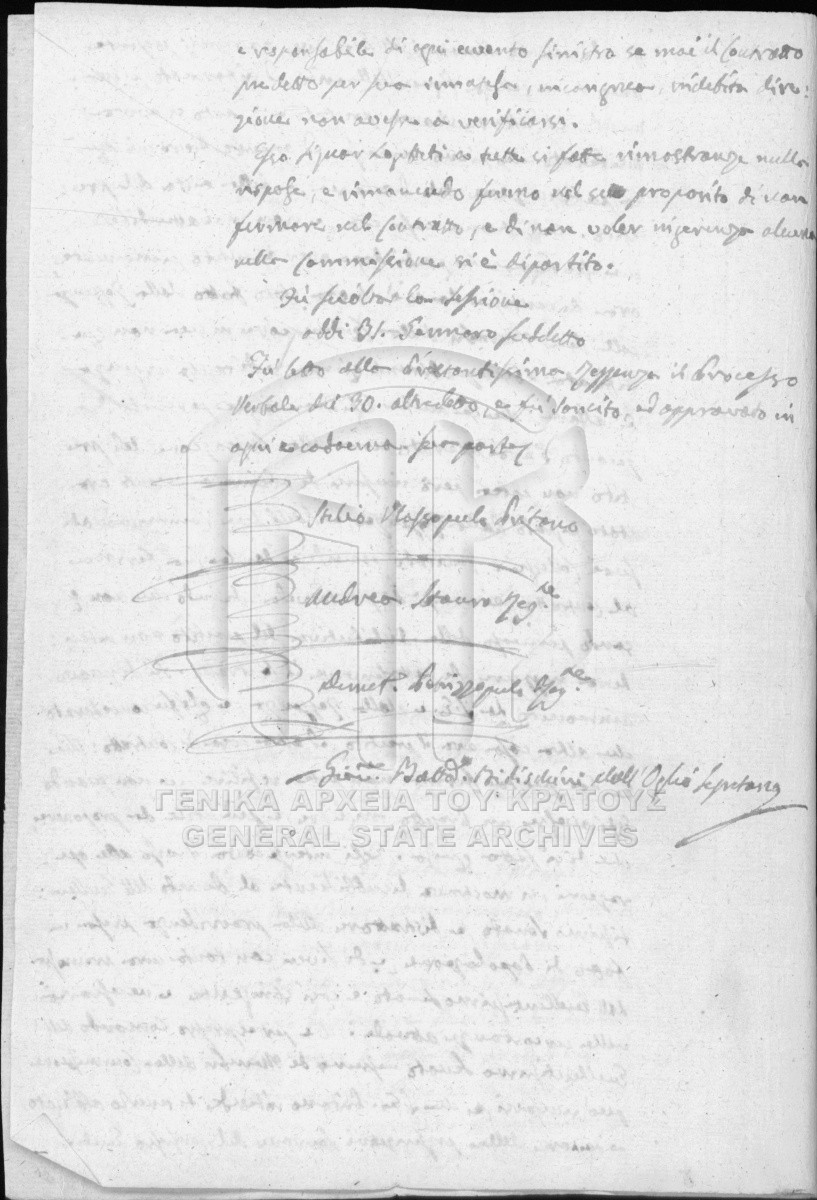 e responsabile di ogni evento sinistro se mai il Contratto
predetto per sua inattesa, incongrua, indebita dire:
zione non avesse a verificarsi.
Esso Signor a tutte si fatte rimostranze nulla
rispose, e rimanendo fermo nel suo proposito di non
firmare nel Contratto, e di non voler ingerenza alcuna
nella Commissione si è dipartito.
Fù sciolta la Sessione
addi 31. Gennaro suddetto
Fù letto alla Prestantissima Reggenza il Processo
Verbale del 30. altredetto, e fù sancito, ed approvato in
ogni e cadauna sua parte
Stelio Vlassopulo Pritano
Andrea Stauro Reg.te
Dimet.o Reg.te
Giov. Batt.a dell'Oglio Segretario
ΓΕΝΙΚΑ ΑΡΧΕΙΑ ΤΟΥ ΚΡΑΤΟΥΣ
GENERAL STATE ARCHIVES